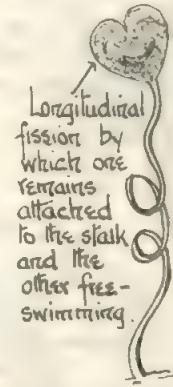 Longitudinal
fission by
which one
remains
attached
to the stalk
and the
other free-
swimming.